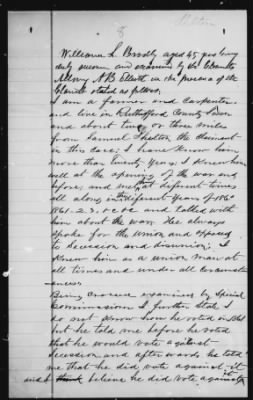 Shelton
William L. Brosby aged 45 yrs being
duly sworn and examined by the Claimants
Attorney A B Elliott in the presence of the
Claimant stated as follows,
I am a farmer and Carpenter
and live in Rutherford County Tenn
and about two or three miles
from Samuel Shelton the Claimant
in this case; I have known him
more than twenty years; I knew him
well at the opening of the war and
before, and met at different times
all along in the different years of 1860
1861. 2. 3. &c &c and talked with
him about the war. He always
spoke for the Union and opposed
to secession and disunion; I
Knew him as a union man at
all times and under all circumst
ances
Being cross examined by Special
Commissioner I further State I
do not know how he voted in 1861
but he told me before he voted
that he would vote against
secession and afterwards he told
me that he did vote against it
and I think believe he did vote against it